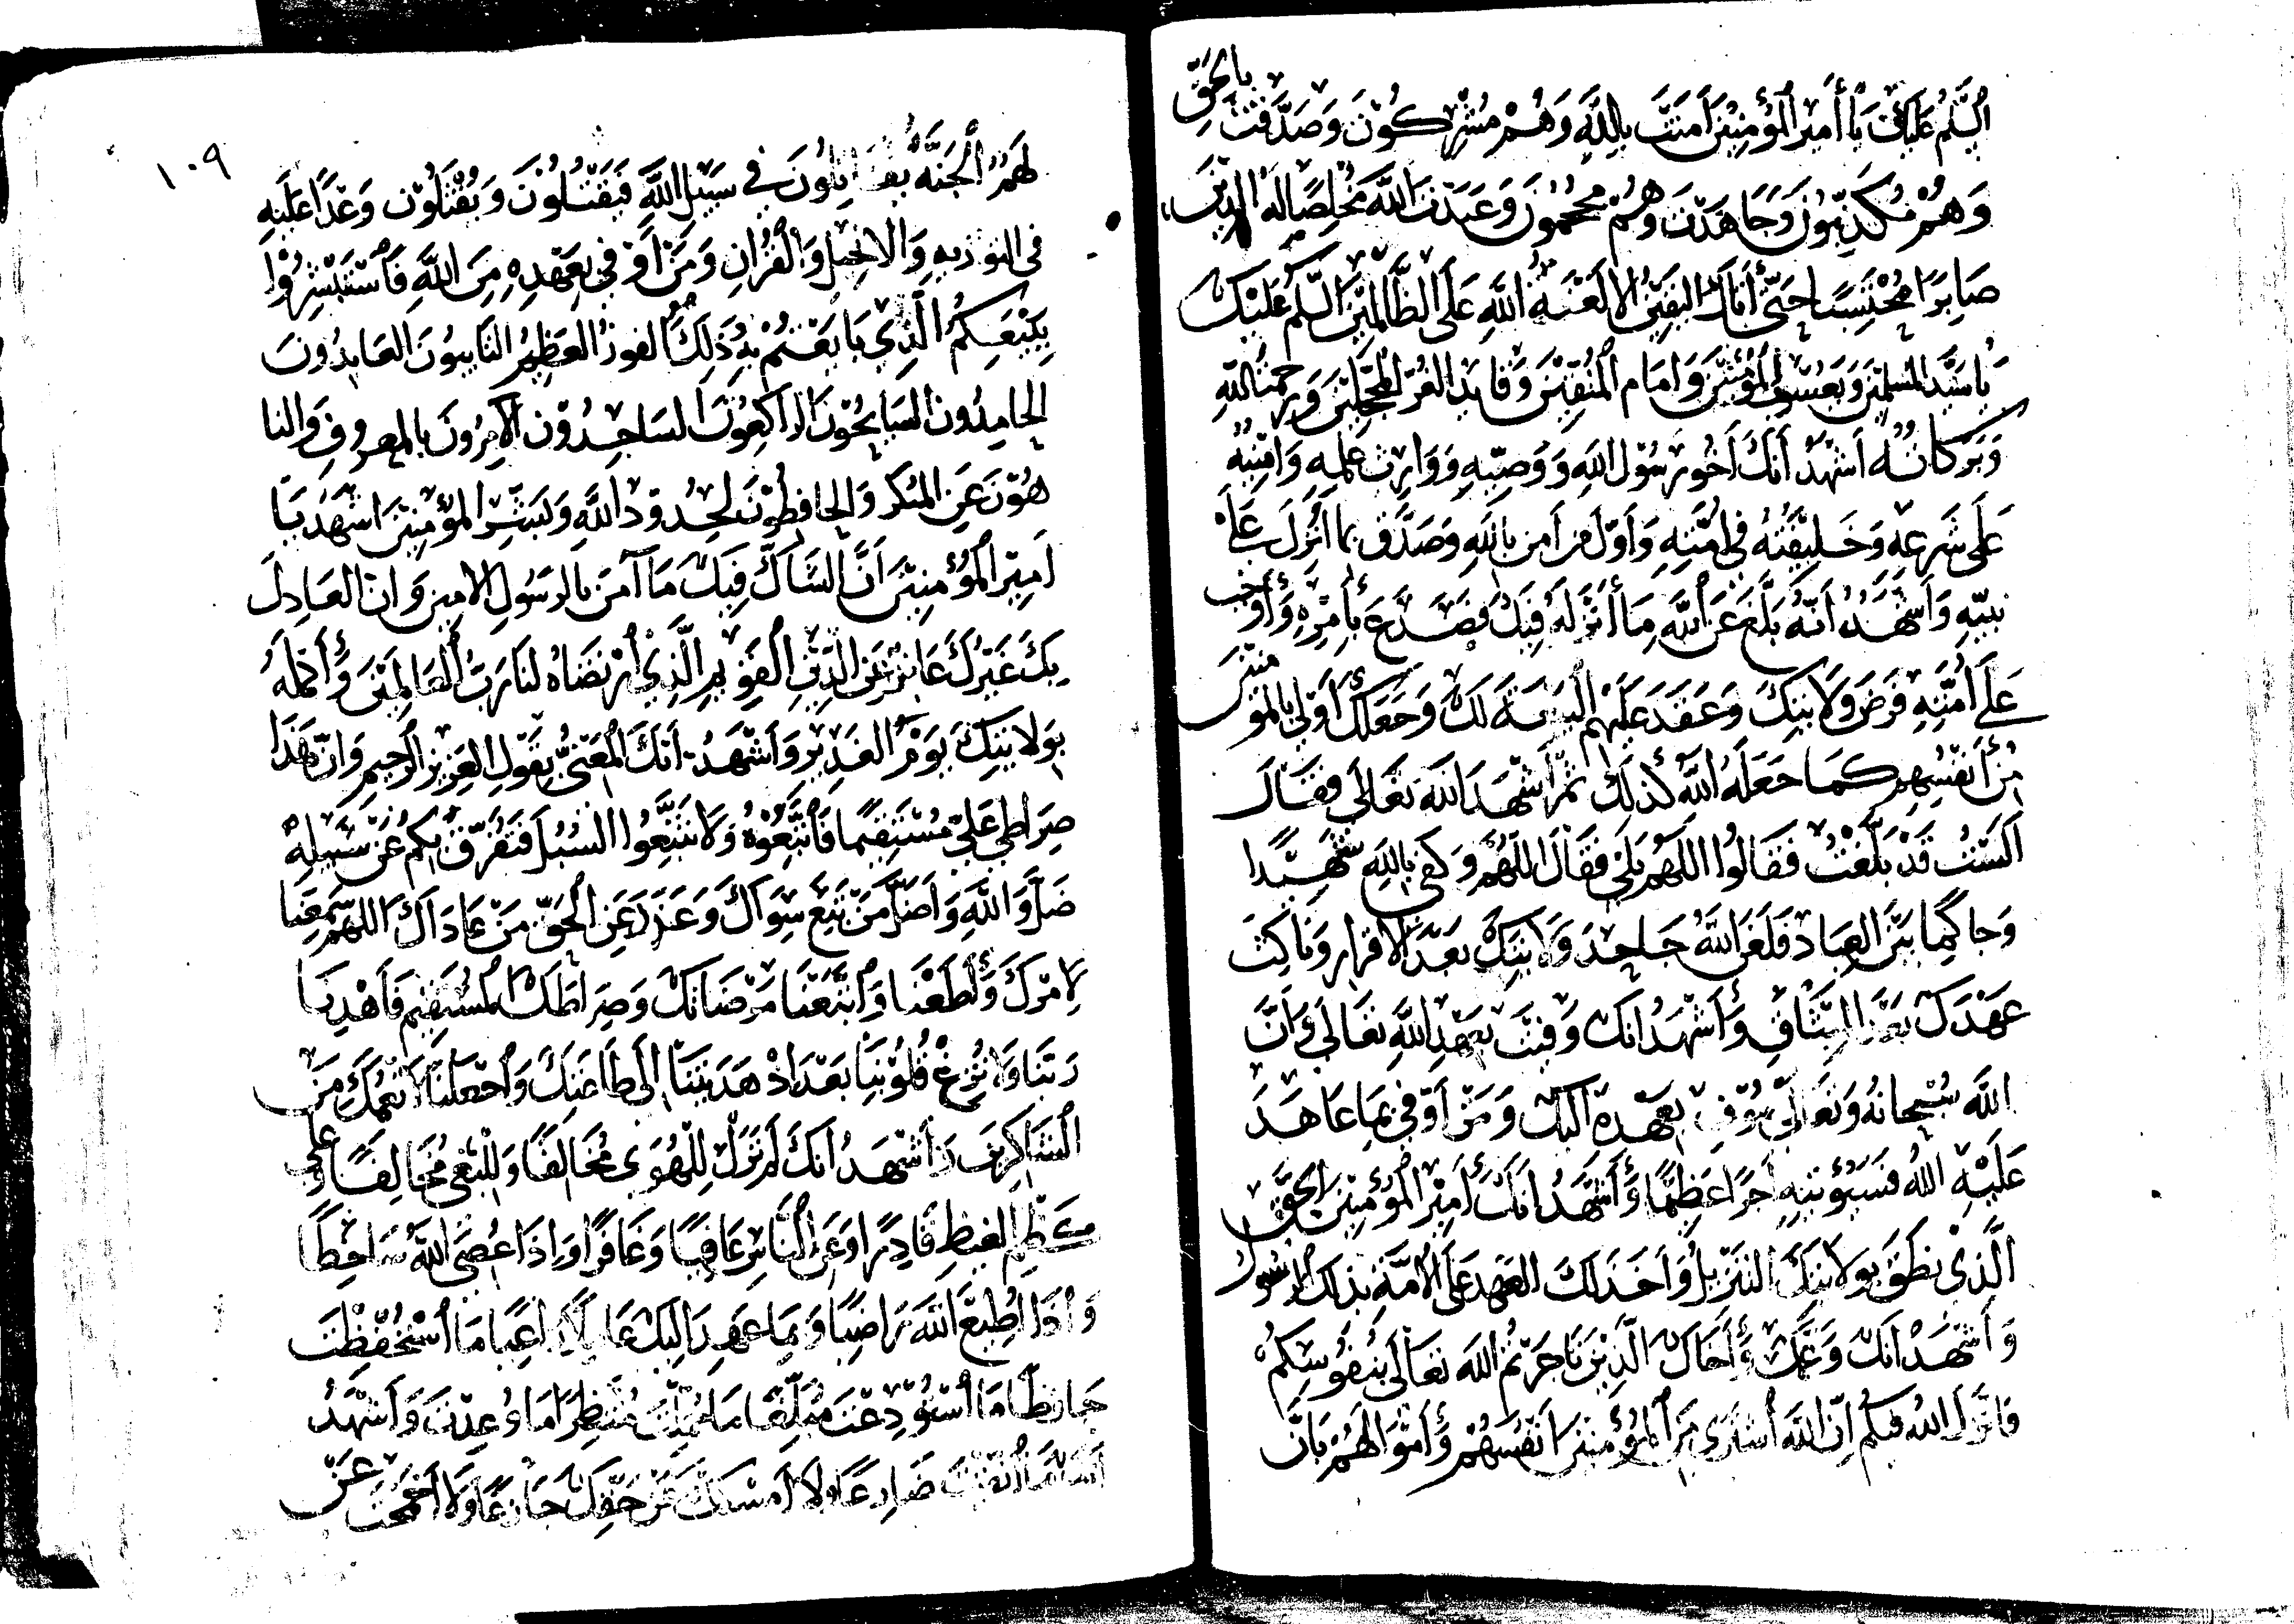 السَّلَمُ عَلَيْكَ يَا أَمِيرَ الْمُؤْمِنِينَ آمَنْتَ بِاللَّهِ وَهُمْ مُشْرِكُونَ وَصَدَّقْتَ بِالْحَقِّ
وَهُمْ مُكَذِّبُونَ وَجَاهَدْتَ وَهُمْ مُحْجِمُونَ وَعَبَدْتَ اللَّهَ مُخْلِصًا لَهُ الدِّينَ
صَابِرًا مُحْتَسِبًا حَتَّى أَتَاكَ الْيَقِينُ أَلَا لَعْنَةُ اللَّهِ عَلَى الظَّالِمِينَ السَّلَمُ عَلَيْكَ
يَا سَيِّدَ الْمُسْلِمِينَ وَيَعْسُوبَ الْمُؤْمِنِينَ وَإِمَامَ الْمُتَّقِينَ وَقَايِدَ الْغُرِّ الْمُحَجَّلِينَ وَرَحْمَتُ اللَّهِ
وَبَرَكَاتُهُ أَشْهَدُ أَنَّكَ أَخُو رَسُولِ اللَّهِ وَوَصِيُّهِ وَوَارِثُ عِلْمِهِ وَأَمِينُهُ
عَلَى شَرْعِهِ وَخَلِيفَتُهُ فِي أُمَّتِهِ وَأَوَّلُ مَنْ آمَنَ بِاللَّهِ وَصَدَّقَ بِمَا أُنْزِلَ عَلَى
نَبِيِّهِ وَأَشْهَدُ أَنَّهُ بَلَّغَ عَنِ اللَّهِ مَا أَنْزَلَهُ فِيكَ فَصَدَعَ بِأَمْرِهِ وَأَوْجَبَ
عَلَى أُمَّتِهِ فَرْضَ وَلَايَتِكَ وَعَقَدَ عَلَيْهِمُ الْبَيْعَةَ لَكَ وَجَعَلَكَ أَوْلَى بِالْمُؤْمِنِينَ
مِنْ أَنْفُسِهِمْ كَمَا جَعَلَهُ اللَّهُ كَذَلِكَ ثُمَّ أَشْهَدَ اللَّهَ تَعَالَى فَقَالَ
أَلَسْتُ قَدْ بَلَّغْتُ فَقَالُوا اللَّهُمَّ بَلَى فَقَالَ اللَّهُمَّ وَكَفَى بِاللَّهِ شَهِيدًا
وَحَاكِمًا بَيْنَ الْعِبَادِ فَلَعَنَ اللَّهُ جَاحِدَ وَلَايَتِكَ بَعْدَ الْإِقْرَارِ وَنَاكِثَ
عَهْدِكَ بَعْدَ الْمِيثَاقِ وَأَشْهَدُ أَنَّكَ وَفَيْتَ بِعَهْدِ اللَّهِ تَعَالَى وَأَنَّ
اللَّهَ سُبْحَانَهُ وَتَعَالَى مُوفٍ بِعَهْدِهِ إِلَيْكَ وَمَنْ أَوْفَى بِمَا عَاهَدَ
عَلَيْهِ اللَّهَ فَسَيُؤْتِيهِ أَجْرًا عَظِيمًا وَأَشْهَدُ أَنَّكَ أَمِيرُ الْمُؤْمِنِينَ الْحَقُّ
الَّذِي نَطَقَ بِوَلَايَتِكَ التَّنْزِيلُ وَأَخَذَ لَكَ الْعَهْدَ عَلَى الْأُمَّةِ بِذَلِكَ الرَّسُولُ
وَأَشْهَدُ أَنَّكَ وَعَمَّكَ وَأَخَاكَ الَّذِينَ تَاجَرْتُمُ اللَّهَ تَعَالَى بِنُفُوسِكُمْ
فَأَنْزَلَ اللَّهُ فِيكُمْ إِنَّ اللَّهَ اشْتَرَى مِنَ الْمُؤْمِنِينَ أَنْفُسَهُمْ وَأَمْوَالَهُمْ بِأَنَّ
١٠٩
لَهُمُ الْجَنَّةَ يُقَاتِلُونَ فِي سَبِيلِ اللَّهِ فَيَقْتُلُونَ وَيُقْتَلُونَ وَعْدًا عَلَيْهِ
فِي التَّوْرَيةِ وَالْإِنْجِيلِ وَالْقُرْآنِ وَمَنْ أَوْفَى بِعَهْدِهِ مِنَ اللَّهِ فَاسْتَبْشِرُوا
بِبَيْعِكُمُ الَّذِي بَايَعْتُمْ بِهِ ذَلِكَ الْفَوْزُ الْعَظِيمُ التَّايِبُونَ الْعَابِدُونَ
الْحَامِدُونَ السَّايِحُونَ الرَّاكِعُونَ السَّاجِدُونَ الْآمِرُونَ بِالْمَعْرُوفِ وَالنَّا
هُونَ عَنِ الْمُنْكَرِ وَالْحَافِظُونَ لِحُدُودِ اللَّهِ وَبَشِّرِ الْمُؤْمِنِينَ أَشْهَدُ يَا
أَمِيرَ الْمُؤْمِنِينَ أَنَّ الشَّاكَّ فِيكَ مَا آمَنَ بِالرَّسُولِ الْأَمِينِ وَأَنَّ الْعَادِلَ
بِكَ غَيْرَكَ عَانِدٌ عَنِ الدِّينِ الْقَوِيمِ الَّذِي ارْتَضَاهُ لَنَا رَبُّ الْعَالَمِينَ وَأَكْمَلَهُ
بِوَلَايَتِكَ يَوْمَ الْغَدِيرِ وَأَشْهَدُ أَنَّكَ الْمَعْنِيُّ بِقَوْلِ الْعَزِيزِ الرَّحِيمِ وَأَنَّ هَذَا
صِرَاطِي عَلِيٍّ مُسْتَقِيمًا فَاتَّبِعُوهُ وَلَا تَتَّبِعُوا السُّبُلَ فَتَفَرَّقَ بِكُمْ عَنْ سَبِيلِهِ
ضَلَّ وَاللَّهِ وَأَضَلَّ مَنِ تَّبَعَ سِوَاكَ وَعَنَدَ عَنِ الْحَقِّ مَنْ عَادَاكَ اللَّهُمَّ سَمِعْنَا
لِأَمْرِكَ وَأَطَعْنَا وَاتَّبَعْنَا مَرْضَاتَكَ وَصِرَاطَكَ الْمُسْتَقِيمَ فَاهْدِنَا
رَبَّنَا وَلَا تُزِغْ قُلُوبَنَا بَعْدَ إِذْ هَدَيْتَنَا إِلَى طَاعَتِكَ وَاجْعَلْنَا لِأَنْعُمِكَ مِنَ
الشَّاكِرِينَ وَأَشْهَدُ أَنَّكَ لَمْ تَزَلْ لِلْهَوَى مُخَالِفًا وَلِلْبَغْيِ مُخَالِفًا وَعَلَى
كَظْمِ الْغَيْظِ قَادِرًا وَعَنِ النَّاسِ عَافِيًا وَغَافِرًا وَإِذَا عُصِيَ اللَّهُ سَاخِطًا
وَإِذَا أُطِيعَ اللَّهُ رَاضِيًا وَبِمَا عَهِدَ إِلَيْكَ عَامِلًا رَاعِيًا مَا اسْتُحْفِظْتَ
حَافِظًا مَا اسْتُودِعْتَ مُبَلِّغًا مَا حُمِّلْتَ مُنْتَظِرًا مَا وُعِدْتَ وَأَشْهَدُ
أَنَّكَ مَا اتَّقَيْتَ ضَارِعًا وَلَا أَمْسَكْتَ عَنْ حَقِّكَ جَازِعًا وَلَا أَحْجَمْتَ عَنْ